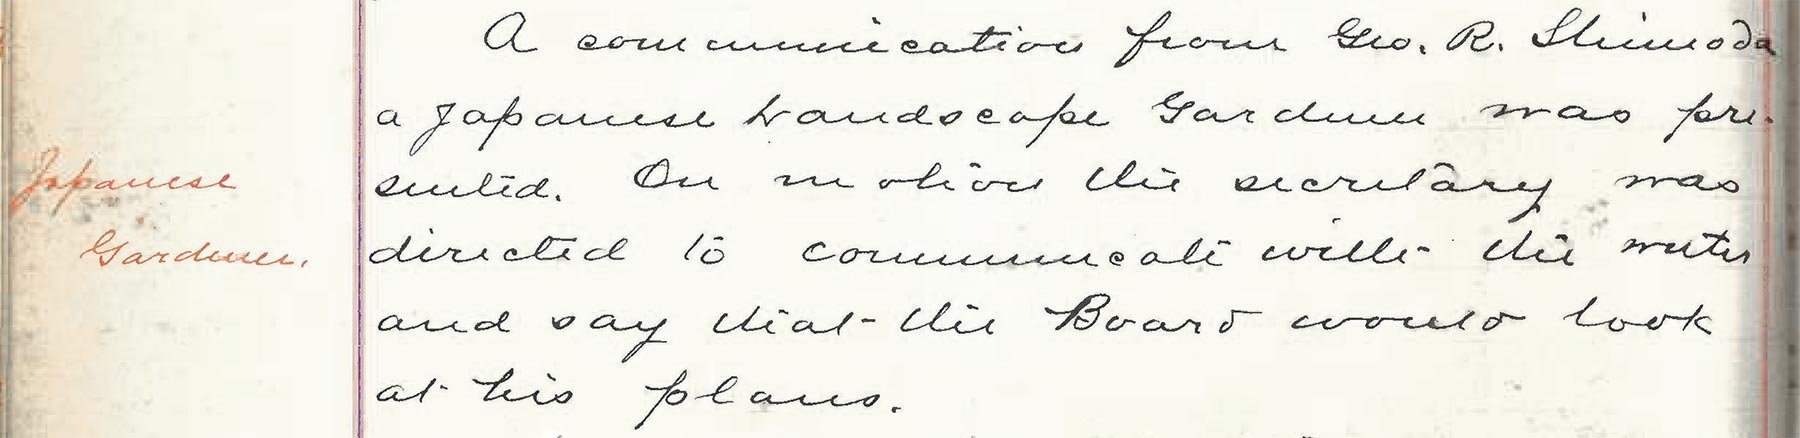 A communication from Geo. R. Shimoda
a Japanese Landscape Gardener was pre-
Japanese
sented. On motion the secretary was
Gardener.
directed to communicate with the writer
and say that the Board would look
at his plans.